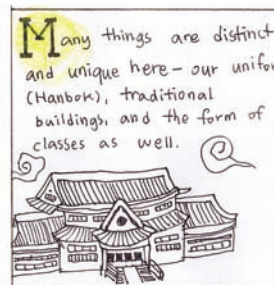 Many things are distinct
and unique here - our unifor
(Hanbok), traditional
buildings, and the form of
classes as well.